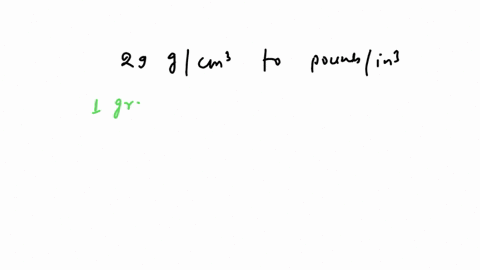 29 g/cm³ to pounds/in3
1 gr.